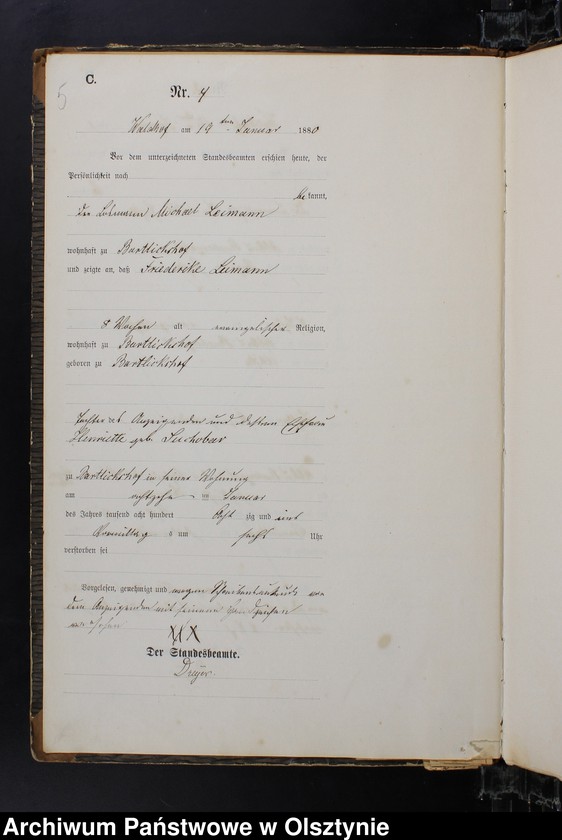 5
C.
Nr. 4
Waldhof am 19 ten Januar 1880
Vor dem unterzeichneten Standesbeamten erschien heute, der
Persönlichkeit nach
bekannt,
der Losmann Michael Leimann
wohnhaft zu Bartlickshof
und zeigte an, daß Friederike Leimann
8 Wochen alt evangelischer Religion,
wohnhaft zu Bartlickshof
geboren zu Bartlickshof
Tochter des Anzeigenden und dessen Ehefrau
Henriette geb.
zu Bartlickshof in seiner Wohnung
am achtzehn ten Januar
des Jahres tausend acht hundert acht zig und
Vormittags um sechs Uhr
verstorben sei
Vorgelesen, genehmigt und wegen Schreibensunkunde von
dem Anzeigenden mit seinem Handzeichen
versehen
XXX
Der Standesbeamte.
Dreyer.
Archiwum Państwowe w Olsztynie